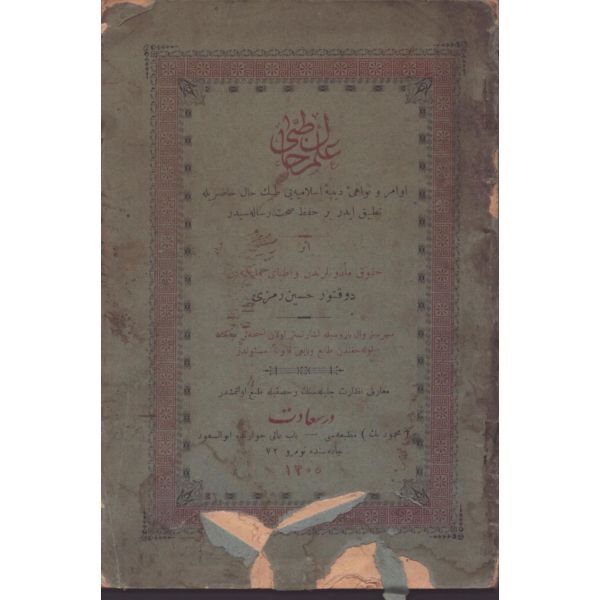 علم حال طبی
اوامر و نواهیٔ دینیهٔ اسلامیه‌یی طبك حال حاضریله
تطبیق ایدر بر حفظ صحت رساله‌سیدر
اثر
حقوق مأذونلرندن و اطبای
دوقتور حسین رمزی
معارف نظارت جلیله‌سنك رخصتیله طبع اولنمشدر
درسعادت
( محمود بك ) مطبعه‌سی — باب عالی جوارنده ابوالسعود
جاده‌سنده نومرو ۷۲
۱۳۰۵